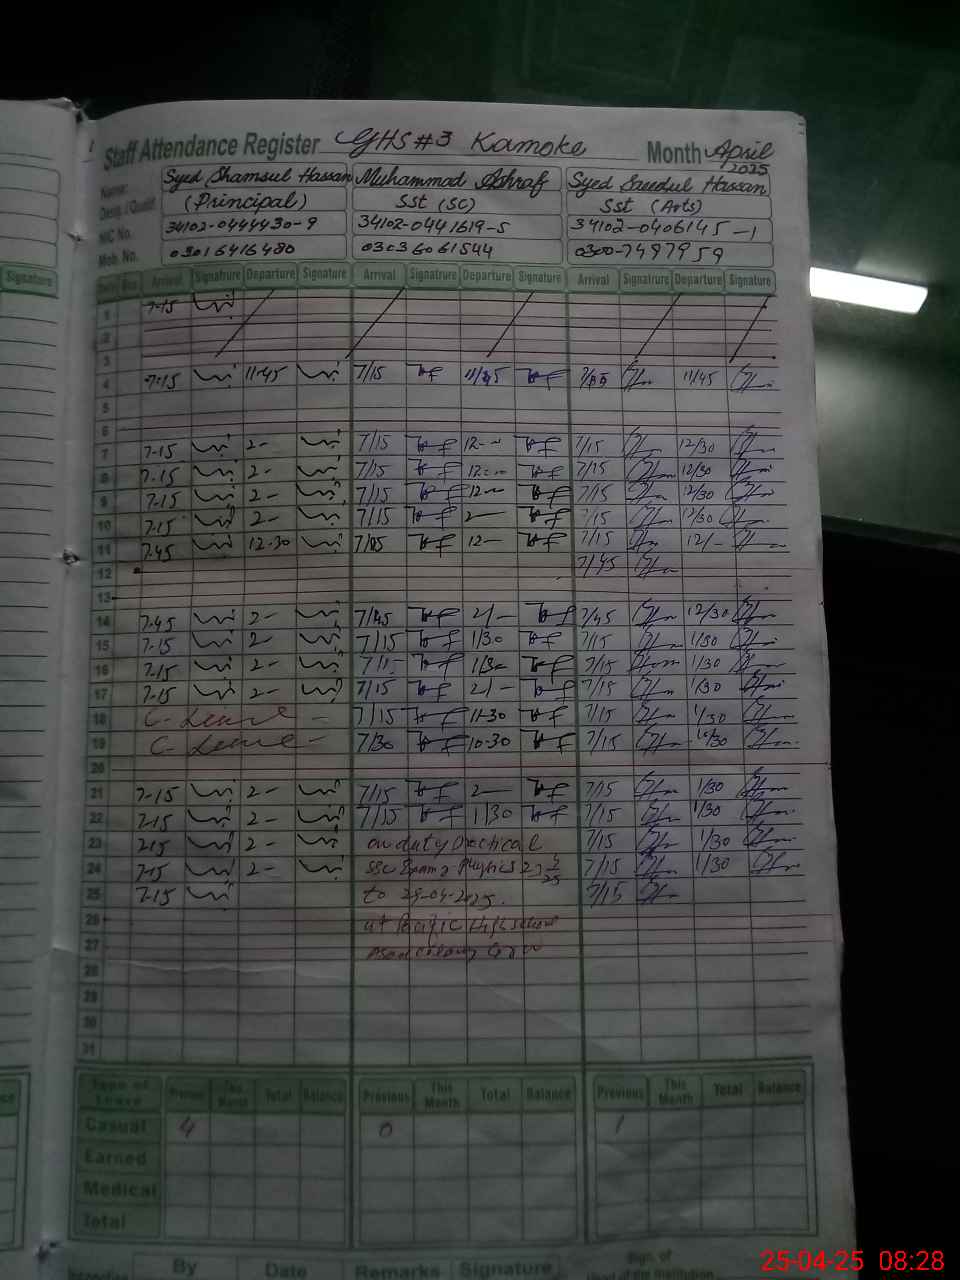 Staff Attendance Register GHS #3 Kamoke Month April 2025
Name: Syed Shamsul Hassan Muhammad Ashraf Syed Saeedul Hassan
Desig. / Qualif. (Principal) Sst (SC) Sst (Arts)
NIC No. 34102-0444430-9 34102-0441619-5 34102-0406145-1
Mob. No. 03016416480 03036061544 0300-7497959
Signature Arrival Signatrure Departure Signature Arrival Signatrure Departure Signature Arrival Signatrure Departure Signature
1 7-15
2
3
4 7-15 11-45 7/15 11/45 11/45
5
6
7 7-15 2- 7/15 12-- 7/15 12/30
8 7-15 2- 7/15 12-- 7/15 12/30
9 7-15 2- 7/15 12-- 7/15 12/30
10 7-15 2- 7/15 2- 7/15 12/30
11 7-45 12-30 12- 7/15 12/-
12 7/45
13
14 7-45 2- 7/45 2/- 7/45 12/30
15 7-15 2- 7/15 1/30 7/15 1/30
16 7-15 2- 7/15 1/30 7/15 1/30
17 7-15 2- 7/15 2/- 7/15 1/30
18 C-Leave - 7/15 11-30 7/15 1/30
19 C-Leave - 7/30 10-30 7/15
20
21 7-15 2- 7/15 2- 7/15 1/30
22 7-15 2- 7/15 1/30 7/15 1/30
23 7-15 2- on duty Practical 7/15 1/30
24 7-15 2- SSC Exam Physics 7/15 1/30
25 7-15 to 29-04-2025. 7/15
26 at Pacific High school
27 Asad colony
28
29
30
31
Type of Leave Previous This Month Total Balance Previous This Month Total Balance Previous This Month Total Balance
Casual 4 0 1
Earned
Medical
Total
By Date Remarks Signature Sign. of
Head of the Institution
25-04-25 08:28